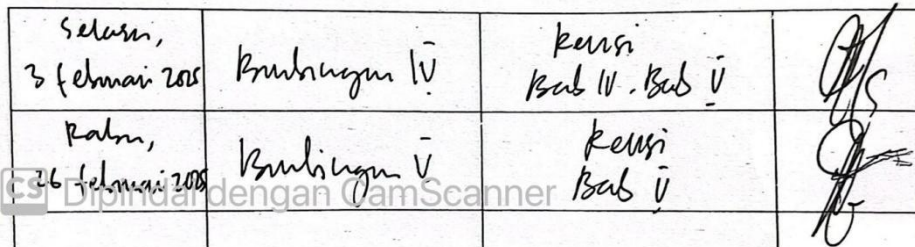 Selasa,
3 februari 2025
Bimbingan IV
Revisi
Bab IV. Bab V
Rabu,
26 februari 2025
Bimbingan V
Revisi
Bab V
CS Dipindai dengan CamScanner